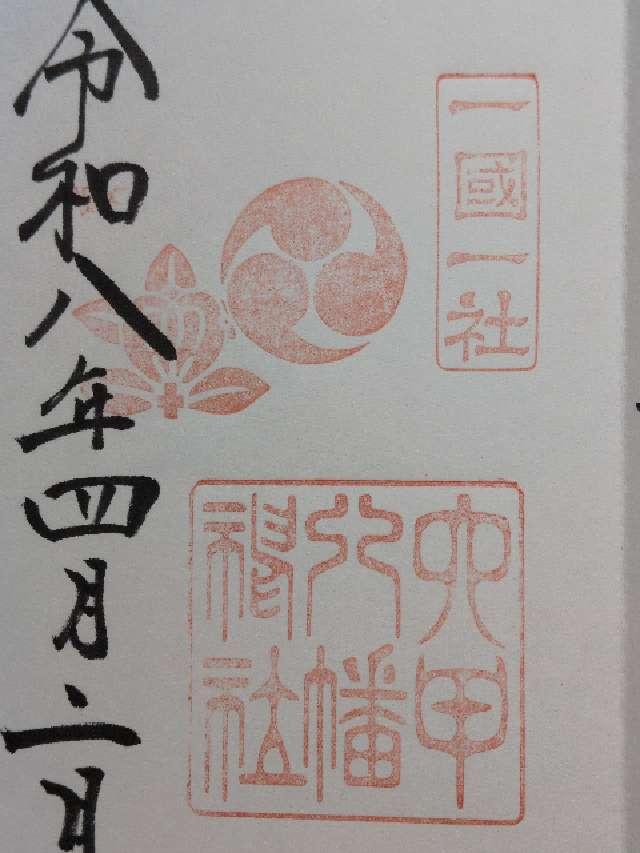 一國一社
六甲
八幡
神社
令和八年四月二日